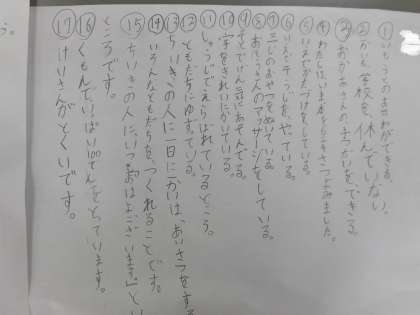 ①いもうとのおせわができる。
②かぜで学校を、休んでいない。
③おかあさんの手つだいをできる。
④わたしはいま本を5さつよみました。
⑤いえでかたづけをしている。
⑥いえでそうじを、やっている。
⑦三じのおやつをぬいている。
⑧おばあさんのマッサージをしている。
⑨そとでげん気にあそんでる。
⑩字をきれいにかいている。
⑪しゅうじでえらばれているところ。
⑫ともだちにゆずっている。
⑬ちいきの人に一日に一かいは、あいさつをする
⑭いろんなともだちを、つくれることです。
⑮ちいきの人に、いつも「おはよございます。」とい
ところです。
⑯くもんでいっぱい100てんをとっています。
⑰けいさんがとくいです。
う。